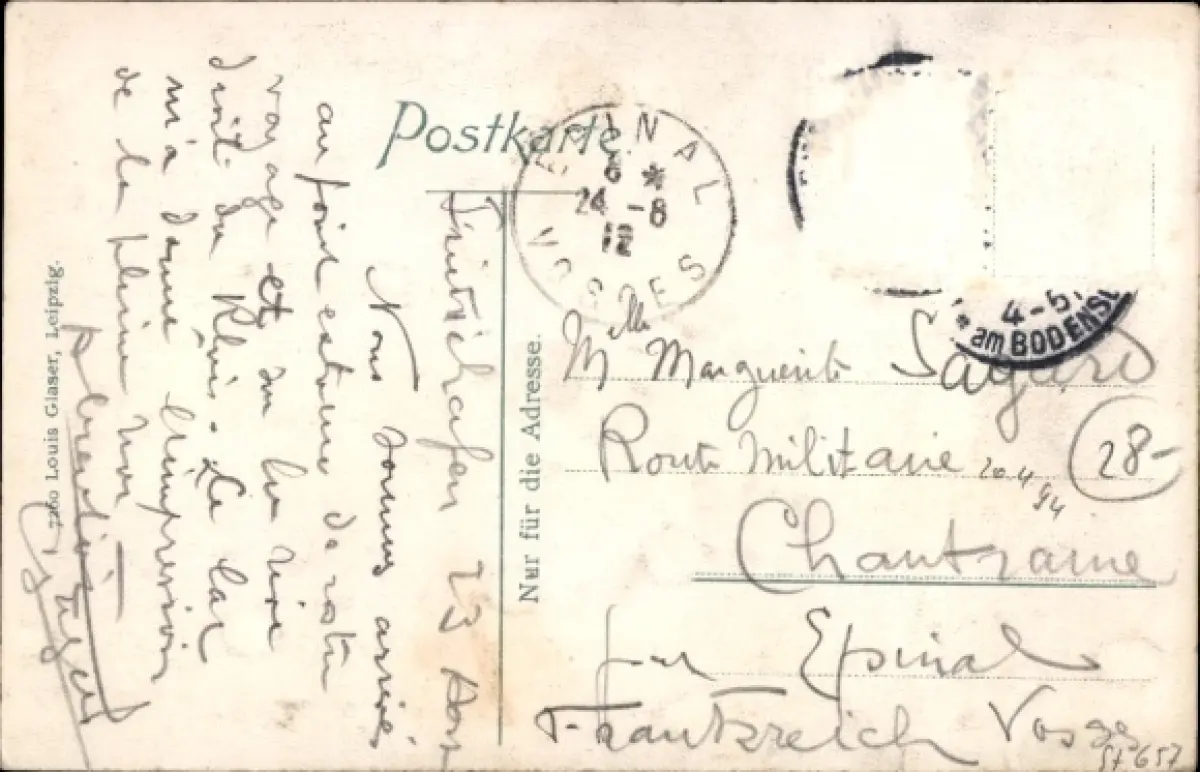 Postkarte.
EPINAL
6 *
24 - 8
12
VOSGES
4-5
am BODENSEE
Nur für die Adresse.
Louis Glaser, Leipzig.
Friedrichshafen 23 Août
Nous sommes arrivés
au point extrême de notre
voyage et sur la rive
droite du Rhin. Le lac
m'a donné l'impression
de la pleine mer
Mlle Marguerite
Route Militaire
20.4.94
28-
Chantraine
par Epinal
Frankreich Vosges
St 657